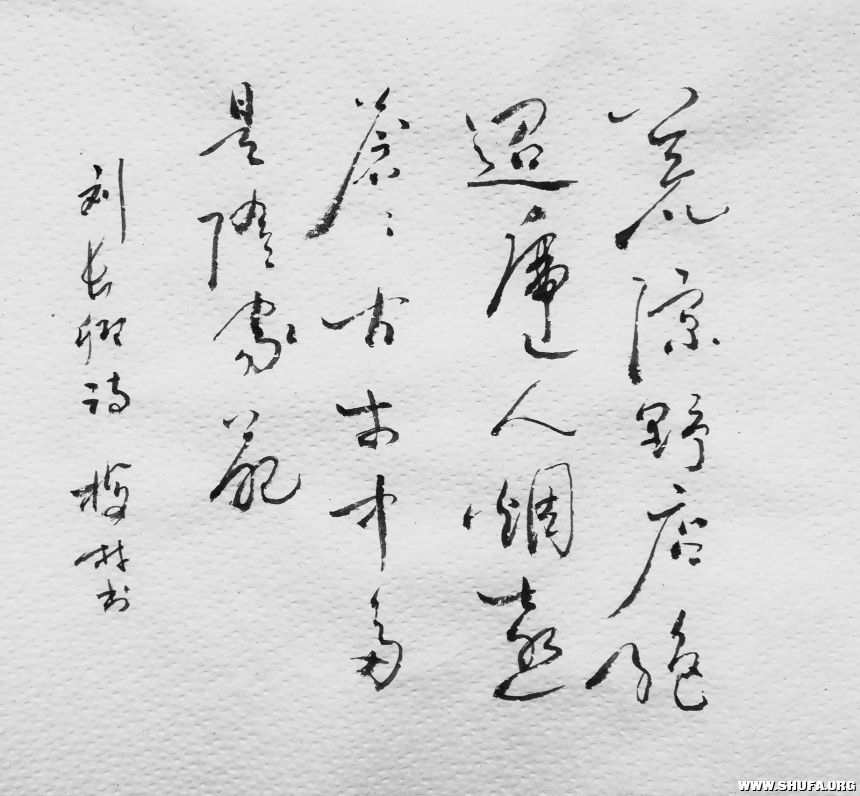 荒涼野店絕
迢遞人烟遠
蒼々古木中多
是隋家苑
刘长卿诗 梅林书
WWW.SHUFA.ORG